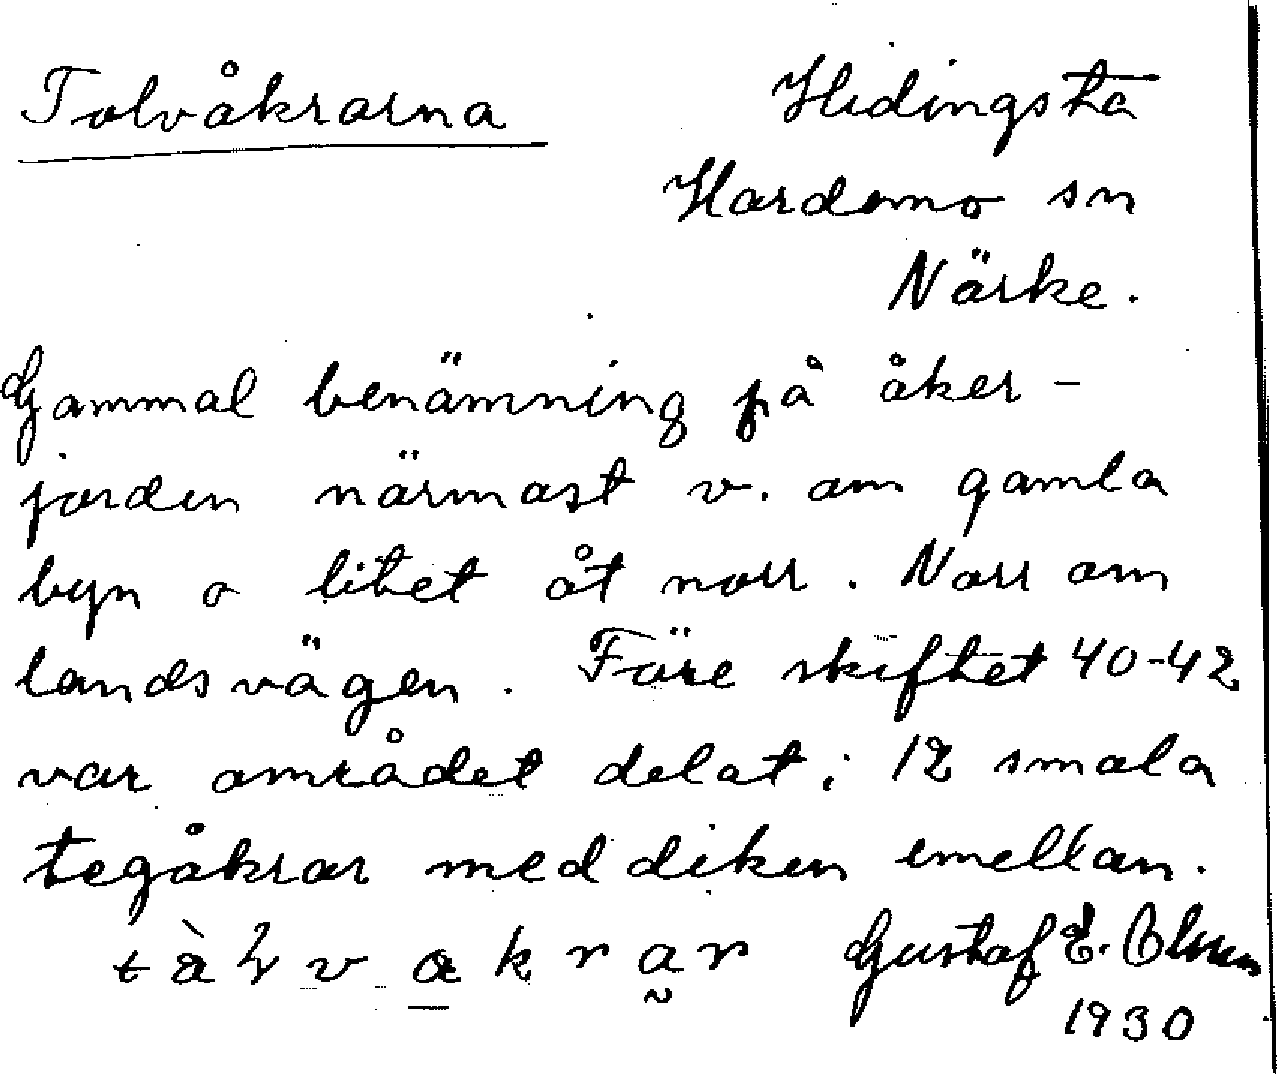 Tolvåkrarna Hidingsta
Hardemo sn
Närke.
Gammal benämning på åker-
jorden närmast v. om gamla
byn o litet åt norr. Norr om
landsvägen. Före skiftet 40-42
var området delat i 12 smala
tegåkrar med diken emellan.
Gustaf E. Olsson
1930